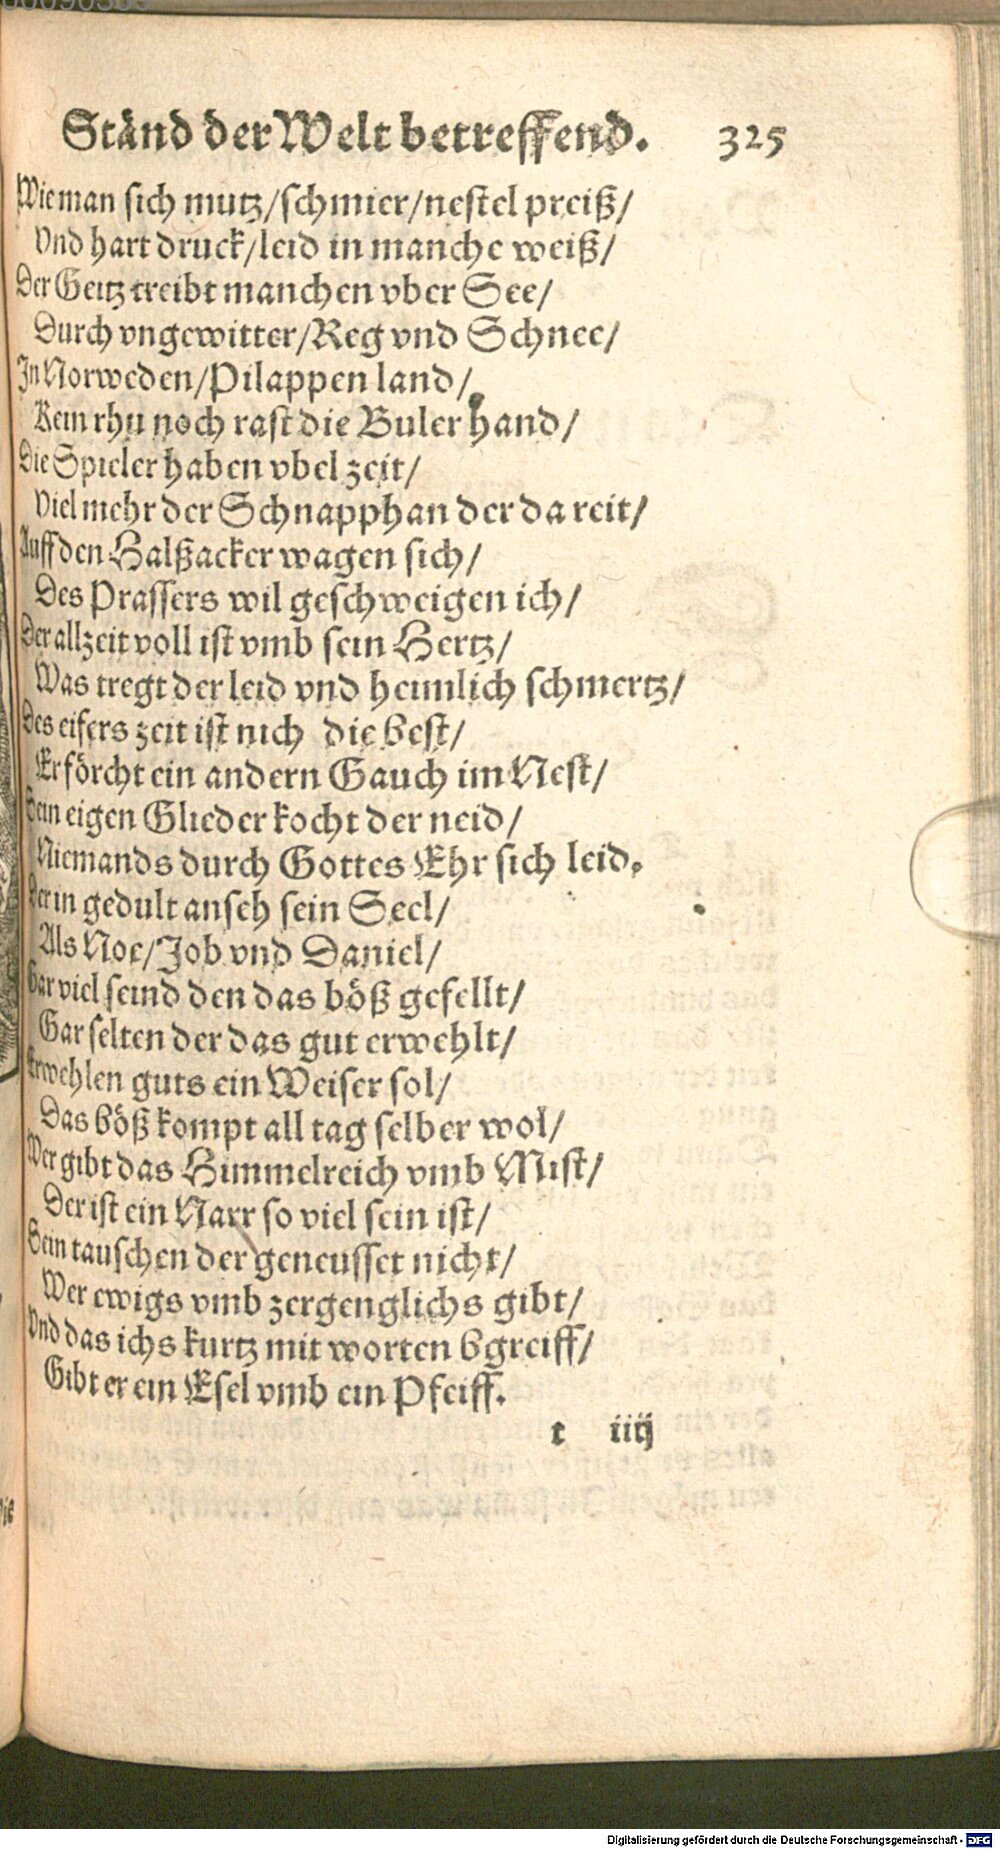 Ständ der Welt betreffend. 325
Wie man sich mutz/schmier/nestel preiß/
Vnd hart druck/leid in manche weiß/
Der Geitz treibt manchen vber See/
Durch vngewitter/Reg vnd Schnee/
In Norweden/Pilappen land/
Kein rhu noch rast die Buler hand/
Die Spieler haben vbel zeit/
Viel mehr der Schnapphan der da reit/
Auff den Halßacker wagen sich/
Des Prassers wil geschweigen ich/
Der allzeit voll ist vmb sein Hertz/
Was tregt der leid vnd heimlich schmertz/
Des eifers zeit ist nich die best/
Er förcht ein andern Gauch im Nest/
Sein eigen Glieder kocht der neid/
Niemands durch Gottes Ehr sich leid.
Der in gedult anseh sein Seel/
Als Noe/Job vnd Daniel/
Gar viel seind den das böß gefellt/
Gar selten der das gut erwehlt/
Erwehlen guts ein Weiser sol/
Das böß kompt all tag selber wol/
Wer gibt das Himmelreich vmb Mist/
Der ist ein Narr so viel sein ist/
Sein tauschen der geneusset nicht/
Wer ewigs vmb zergenglichs gibt/
Vnd das ichs kurtz mit worten bgreiff/
Gibt er ein Esel vmb ein Pfeiff.
t iiij
Digitalisierung gefördert durch die Deutsche Forschungsgemeinschaft - DFG